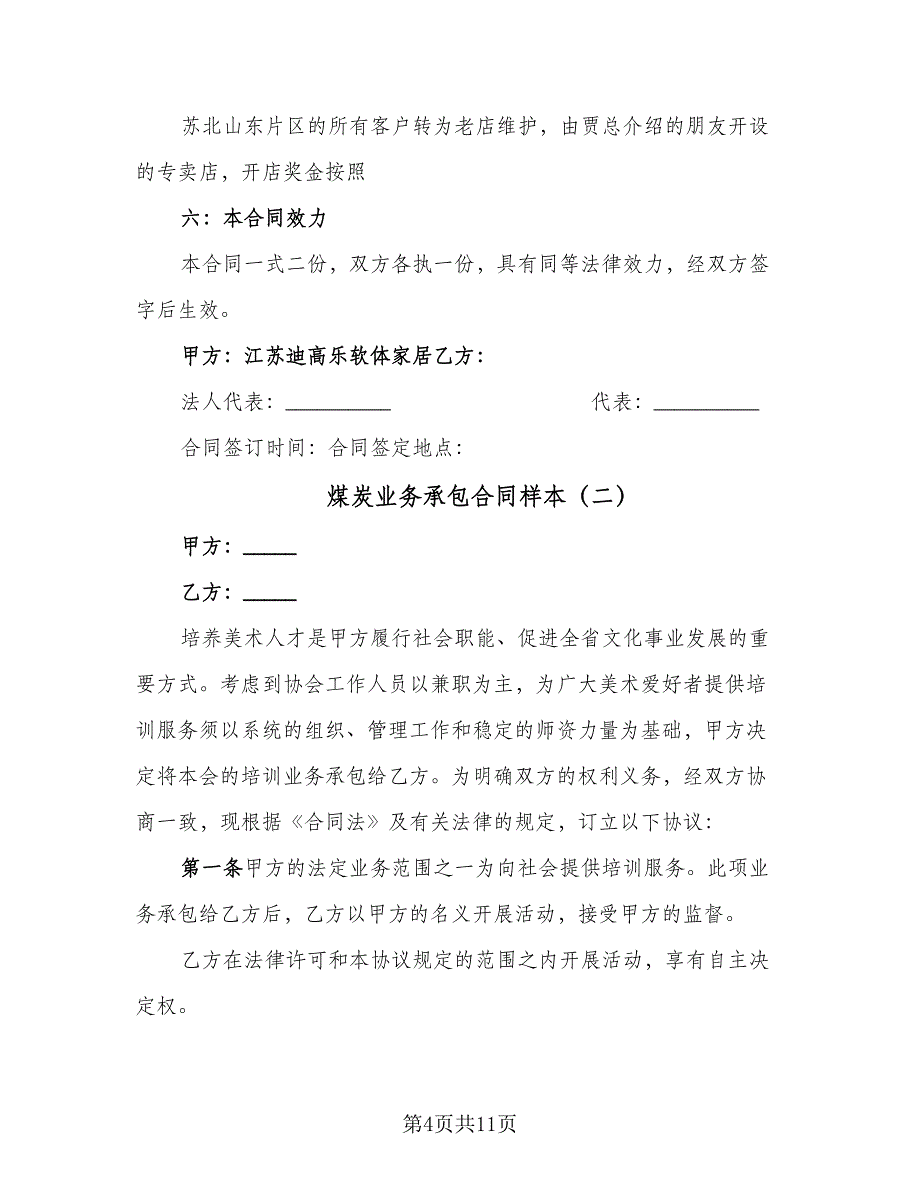 苏北山东片区的所有客户转为老店维护，由贾总介绍的朋友开设
的专卖店，开店奖金按照
六：本合同效力
本合同一式二份，双方各执一份，具有同等法律效力，经双方签
字后生效。
甲方：江苏迪高乐软体家居乙方：
法人代表：__________ 代表：__________
合同签订时间：合同签定地点：
煤炭业务承包合同样本（二）
甲方：_____
乙方：_____
培养美术人才是甲方履行社会职能、促进全省文化事业发展的重
要方式。考虑到协会工作人员以兼职为主，为广大美术爱好者提供培
训服务须以系统的组织、管理工作和稳定的师资力量为基础，甲方决
定将本会的培训业务承包给乙方。为明确双方的权利义务，经双方协
商一致，现根据《合同法》及有关法律的规定，订立以下协议：
第一条甲方的法定业务范围之一为向社会提供培训服务。此项业
务承包给乙方后，乙方以甲方的名义开展活动，接受甲方的监督。
乙方在法律许可和本协议规定的范围之内开展活动，享有自主决
定权。
第4页共11页